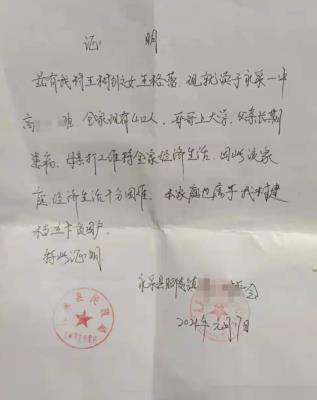 证 明
兹有我村王树之女王格蕾,现就读于永采一中
高 班,全家现有4口人,哥哥上大学,父亲长期
患病,母亲打工维持全家经济生活,因此该家
庭经济生活十分困难,本家庭也属于我村建
档立卡贫困户
特此证明
永采县 镇 委会
2021年元月17日